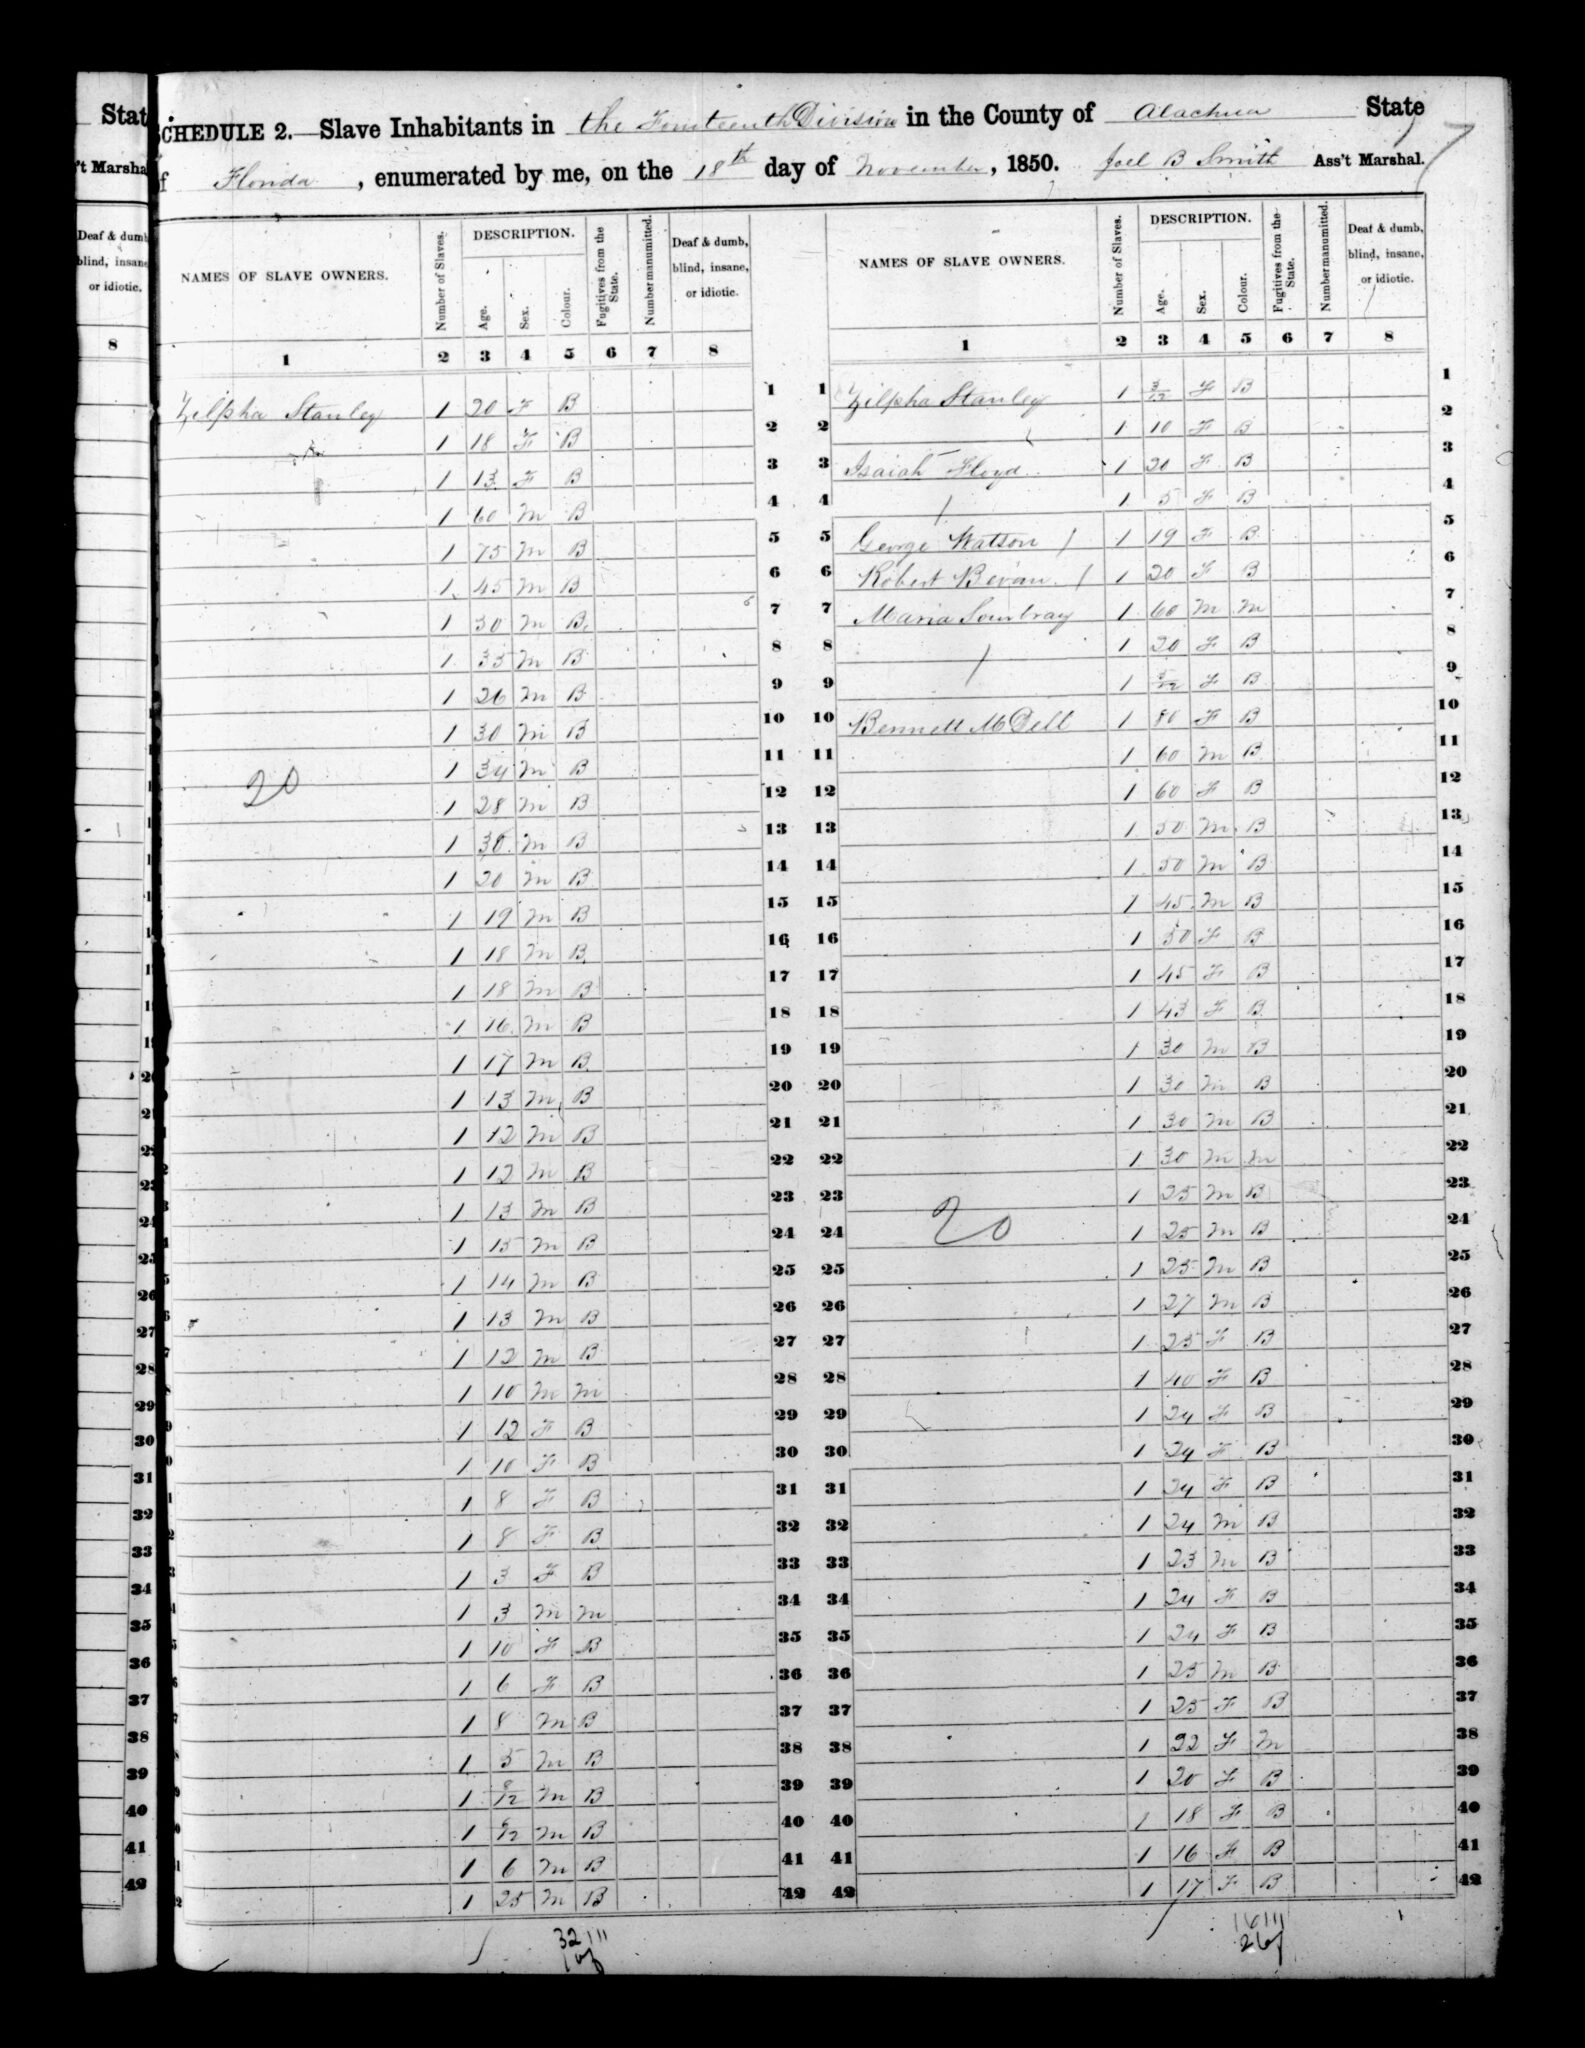 Stat
't Marsha
Deaf & dumb
blind, insane
or idiotic.
8
SCHEDULE 2.—Slave Inhabitants in the Fourteenth Division in the County of Alachua State
of Florida, enumerated by me, on the 18th day of November, 1850. Joel B Smith Ass't Marshal.
NAMES OF SLAVE OWNERS. Number of Slaves. DESCRIPTION. Age. Sex. Colour. Fugitives from the State. Number manumitted. Deaf & dumb, blind, insane, or idiotic.
1 2 3 4 5 6 7 8
Zilpha Stanley 1 20 F B 1
1 18 F B 2
1 13 F B 3
1 60 M B 4
1 75 M B 5
1 45 M B 6
1 30 M B 7
1 33 M B 8
1 26 M B 9
1 30 M B 10
1 34 M B 11
20 1 28 M B 12
1 30 M B 13
1 20 M B 14
1 19 M B 15
1 18 M B 16
1 18 M B 17
1 16 M B 18
1 17 M B 19
1 13 M B 20
1 12 M B 21
1 12 M B 22
1 13 M B 23
1 15 M B 24
1 14 M B 25
1 13 M B 26
1 12 M B 27
1 10 M M 28
1 12 F B 29
1 10 F B 30
1 8 F B 31
1 8 F B 32
1 3 F B 33
1 3 M M 34
1 10 F B 35
1 6 F B 36
1 8 M B 37
1 5 M B 38
1 8/12 M B 39
1 6/12 M B 40
1 6 M B 41
1 25 M B 42
32
NAMES OF SLAVE OWNERS. Number of Slaves. DESCRIPTION. Age. Sex. Colour. Fugitives from the State. Number manumitted. Deaf & dumb, blind, insane, or idiotic.
1 2 3 4 5 6 7 8
1 Zilpha Stanley 1 3/12 F B 1
2 1 10 F B 2
3 Isaiah Floyd 1 20 F B 3
4 1 5 F B 4
5 George Watson 1 19 F B 5
6 Robert Bevan 1 20 F B 6
7 Maria 1 60 M M 7
8 1 20 F B 8
9 1 F B 9
10 Bennett M Dell 1 80 F B 10
11 1 60 M B 11
12 1 60 F B 12
13 1 50 M B 13
14 1 50 M B 14
15 1 45 M B 15
16 1 50 F B 16
17 1 45 F B 17
18 1 43 F B 18
19 1 30 M B 19
20 1 30 M B 20
21 1 30 M B 21
22 1 30 M M 22
23 1 25 M B 23
24 20 1 25 M B 24
25 1 25 M B 25
26 1 27 M B 26
27 1 25 F B 27
28 1 40 F B 28
29 1 24 F B 29
30 1 24 F B 30
31 1 24 F B 31
32 1 24 M B 32
33 1 23 M B 33
34 1 24 F B 34
35 1 24 F B 35
36 1 25 M B 36
37 1 25 F B 37
38 1 22 F M 38
39 1 20 F B 39
40 1 18 F B 40
41 1 16 F B 41
42 1 17 F B 42
16
26